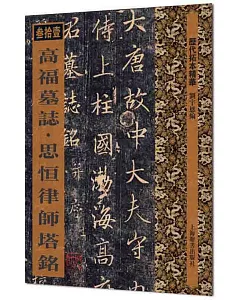 叁拾壹
高福墓誌·思恒律師塔銘
歷代拓本精華
大唐故中大夫守
侍上柱國渤海高
墓誌銘
上海辭書出版社